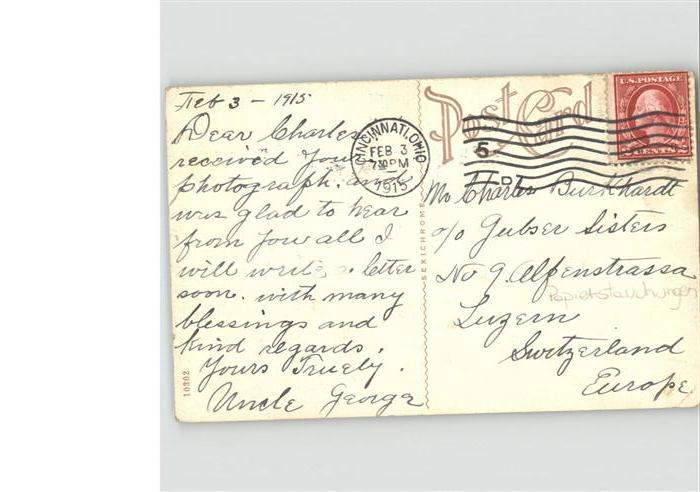 Feb 3 - 1915
Dear Charles
received your
photograph. and
was glad to hear
from you all I
will write a letter
soon. with many
blessings and
kind regards.
Yours Truely.
Uncle George
10302
SEXICHROME
Post Card
CINCINNATI, OHIO
FEB 3
730 PM
1915
5
U.S. POSTAGE
2 CENTS 2
Mr Charles Burkhardt
c/o Gubser Sisters
No 9. Alpenstrassa
Papierstauchungen
Luzern
Switzerland
Europe